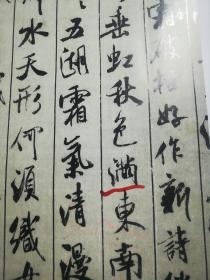 破柑好作新詩
垂虹秋色滿東南
五湖霜氣清漫
水天形何須織女